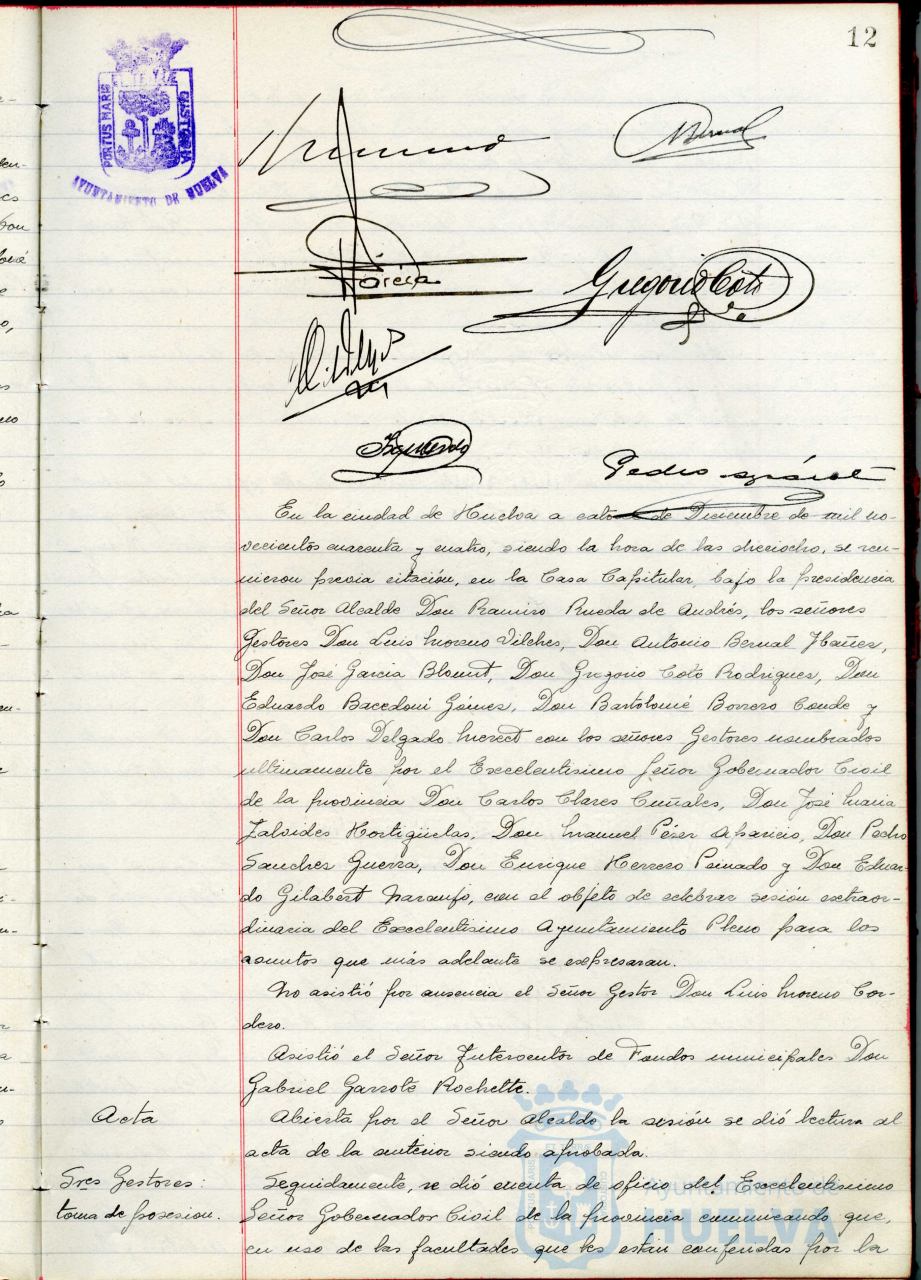 12
PORTUS MARIS
CUSTODIA
AYUNTAMIENTO DE HUELVA
Bernal
García
Gregorio Coto
Izquierdo
Pedro
En la ciudad de Huelva a cator de Diciembre de mil no-
vecientos cuarenta y cuatro, siendo la hora de las dieciocho, se reu-
nieron previa citación, en la Casa Capitular, bajo la presidencia
del Señor Alcalde Don Ramiro Rueda de Andrés, los señores
Gestores Don Luis Moreno Vilches, Don Antonio Bernal Ybañes,
Don José Garcia Blount, Don Gregorio Coto Rodrigues, Don
Eduardo Bacedoni Gómes, Don Bartolomé Borrero Conde y
Don Carlos Delgado con los señores Gestores nombrados
ultimamente por el Excelentisimo Señor Gobernador Civil
de la provincia Don Carlos Clares Cuñales, Don José Maria
Jalvides Hortigüelas, Don Manuel Pérez Aparicio, Don Pedro
Sanches Guerra, Don Enrique Herrero Peinado y Don Eduar-
do Gilabert Naranjo, con el objeto de celebrar sesión extraor-
dinaria del Excelentisimo Ayuntamiento Pleno para los
asuntos que más adelante se expresaran.
No asistió por ausencia el Señor Gestor Don Luis Moreno Cor-
dero.
Asistió el Señor Interventor de Fondos municipales Don
Gabriel Garrote Rochette.
Acta
Abierta por el Señor Alcalde la sesión se dió lectura al
acta de la anterior siendo aprobada.
Sres Gestores:
toma de posesion.
Seguidamente, se dió cuenta de oficio del Excelentisimo
Señor Gobernador Civil de la provincia comunicando que,
en uso de las facultades que les estan conferidas por la
Ayuntamiento de
HUELVA